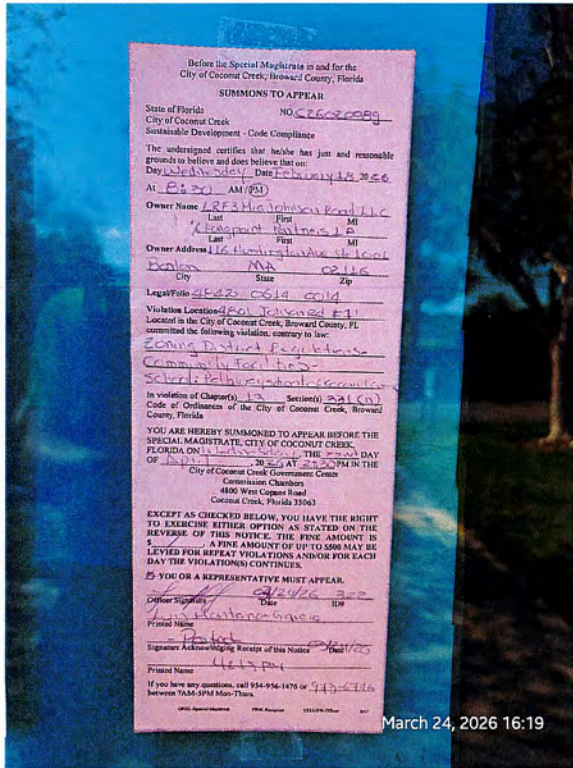 Before the Special Magistrate in and for the
City of Coconut Creek, Broward County, Florida
SUMMONS TO APPEAR
State of Florida NO. C26020989
City of Coconut Creek
Sustainable Development - Code Compliance
The undersigned certifies that he/she has just and reasonable
grounds to believe and does believe that on:
Day Wednesday Date February 18 2026
At 8:30 AM/PM
Owner Name LRF3 Mia Johnson Road LLC
Last First MI
% Longpoint Partners LP
Last First MI
Owner Address 116 Huntington Ave Ste 1001
Boston MA 02116
City State Zip
Legal/Folio 4842 0614 0014
Violation Location 4801 Johnson Rd #1
Located in the City of Coconut Creek, Broward County, FL
committed the following violation, contrary to law:
Zoning District Regulations-
Community Facilities-
Schools
In violation of Chapter(s) 13 Section(s) 331 (n)
Code of Ordinances of the City of Coconut Creek, Broward
County, Florida
YOU ARE HEREBY SUMMONED TO APPEAR BEFORE THE
SPECIAL MAGISTRATE, CITY OF COCONUT CREEK,
FLORIDA ON Wednesday, THE 22nd DAY
OF April, 2026 AT 2:30 PM IN THE
City of Coconut Creek Government Center
Commission Chambers
4800 West Copans Road
Coconut Creek, Florida 33063
EXCEPT AS CHECKED BELOW, YOU HAVE THE RIGHT
TO EXERCISE EITHER OPTION AS STATED ON THE
REVERSE OF THIS NOTICE. THE FINE AMOUNT IS
$ . A FINE AMOUNT OF UP TO $500 MAY BE
LEVIED FOR REPEAT VIOLATIONS AND/OR FOR EACH
DAY THE VIOLATION(S) CONTINUES.
YOU OR A REPRESENTATIVE MUST APPEAR.
03/24/26 322
Officer Signature Date ID#
Printed Name
- Posted - 03/24/26
Signature Acknowledging Receipt of this Notice Date
4:13 PM
Printed Name
If you have any questions, call 954-956-1476 or 973-6746
between 7AM-5PM Mon-Thurs.
March 24, 2026 16:19